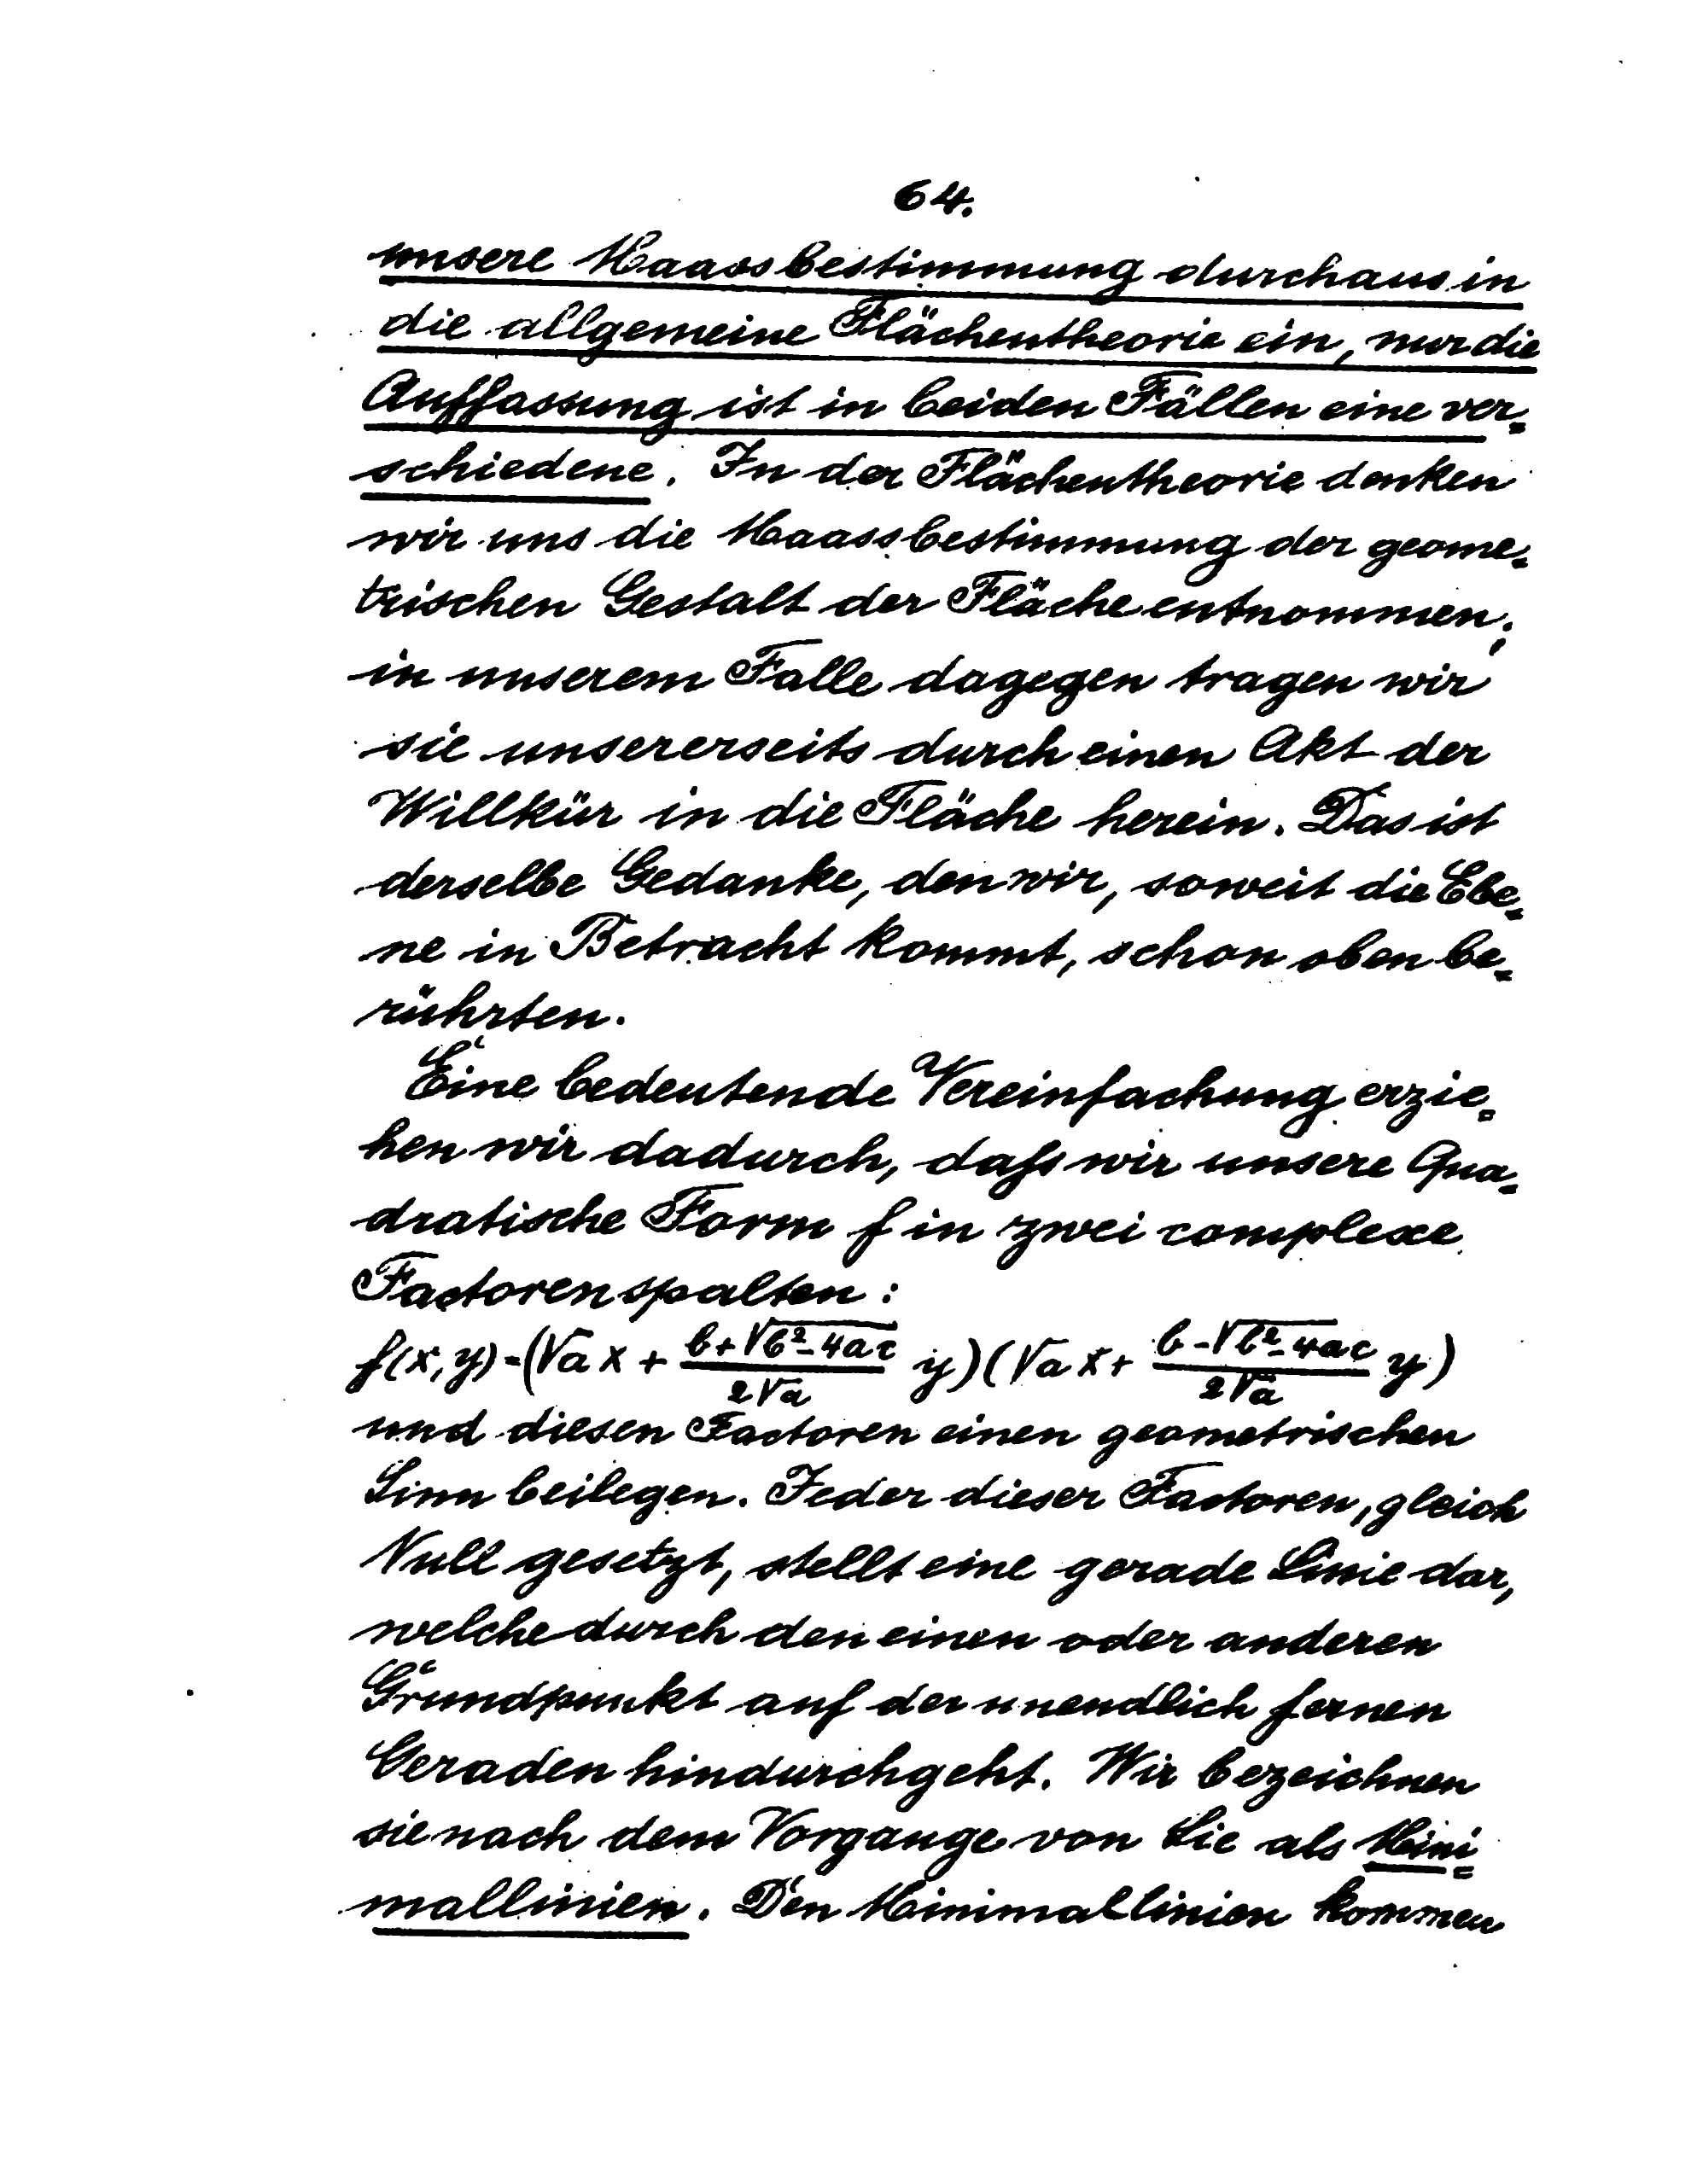 64.
unsere Maassbestimmung durchaus in
die allgemeine Flächentheorie ein, nur die
Auffassung ist in beiden Fällen eine ver=
schiedene. In der Flächentheorie denken
wir uns die Maassbestimmung der geome=
trischen Gestalt der Fläche entnommen;
in unserem Falle dagegen tragen wir
sie unsererseits durch einen Akt der
Willkür in die Fläche herein. Das ist
derselbe Gedanke, den wir, soweit die Ebe=
ne in Betracht kommt, schon oben be=
rührten.
Eine bedeutende Vereinfachung erzie=
hen wir dadurch, daß wir unsere Qua=
dratische Form f in zwei complexe
Factoren spalten:
f(x,y)=(√a x + (b+√(b²-4ac))/(2√a) y)(√a x + (b-√(b²-4ac))/(2√a) y)
und diesen Factoren einen geometrischen
Sinn beilegen. Jeder dieser Factoren, gleich
Null gesetzt, stellt eine gerade Linie dar,
welche durch den einen oder anderen
Grundpunkt auf der unendlich fernen
Geraden hindurchgeht. Wir bezeichnen
sie nach dem Vorgange von Lie als Mini=
mallinien. Den Minimallinien kommen